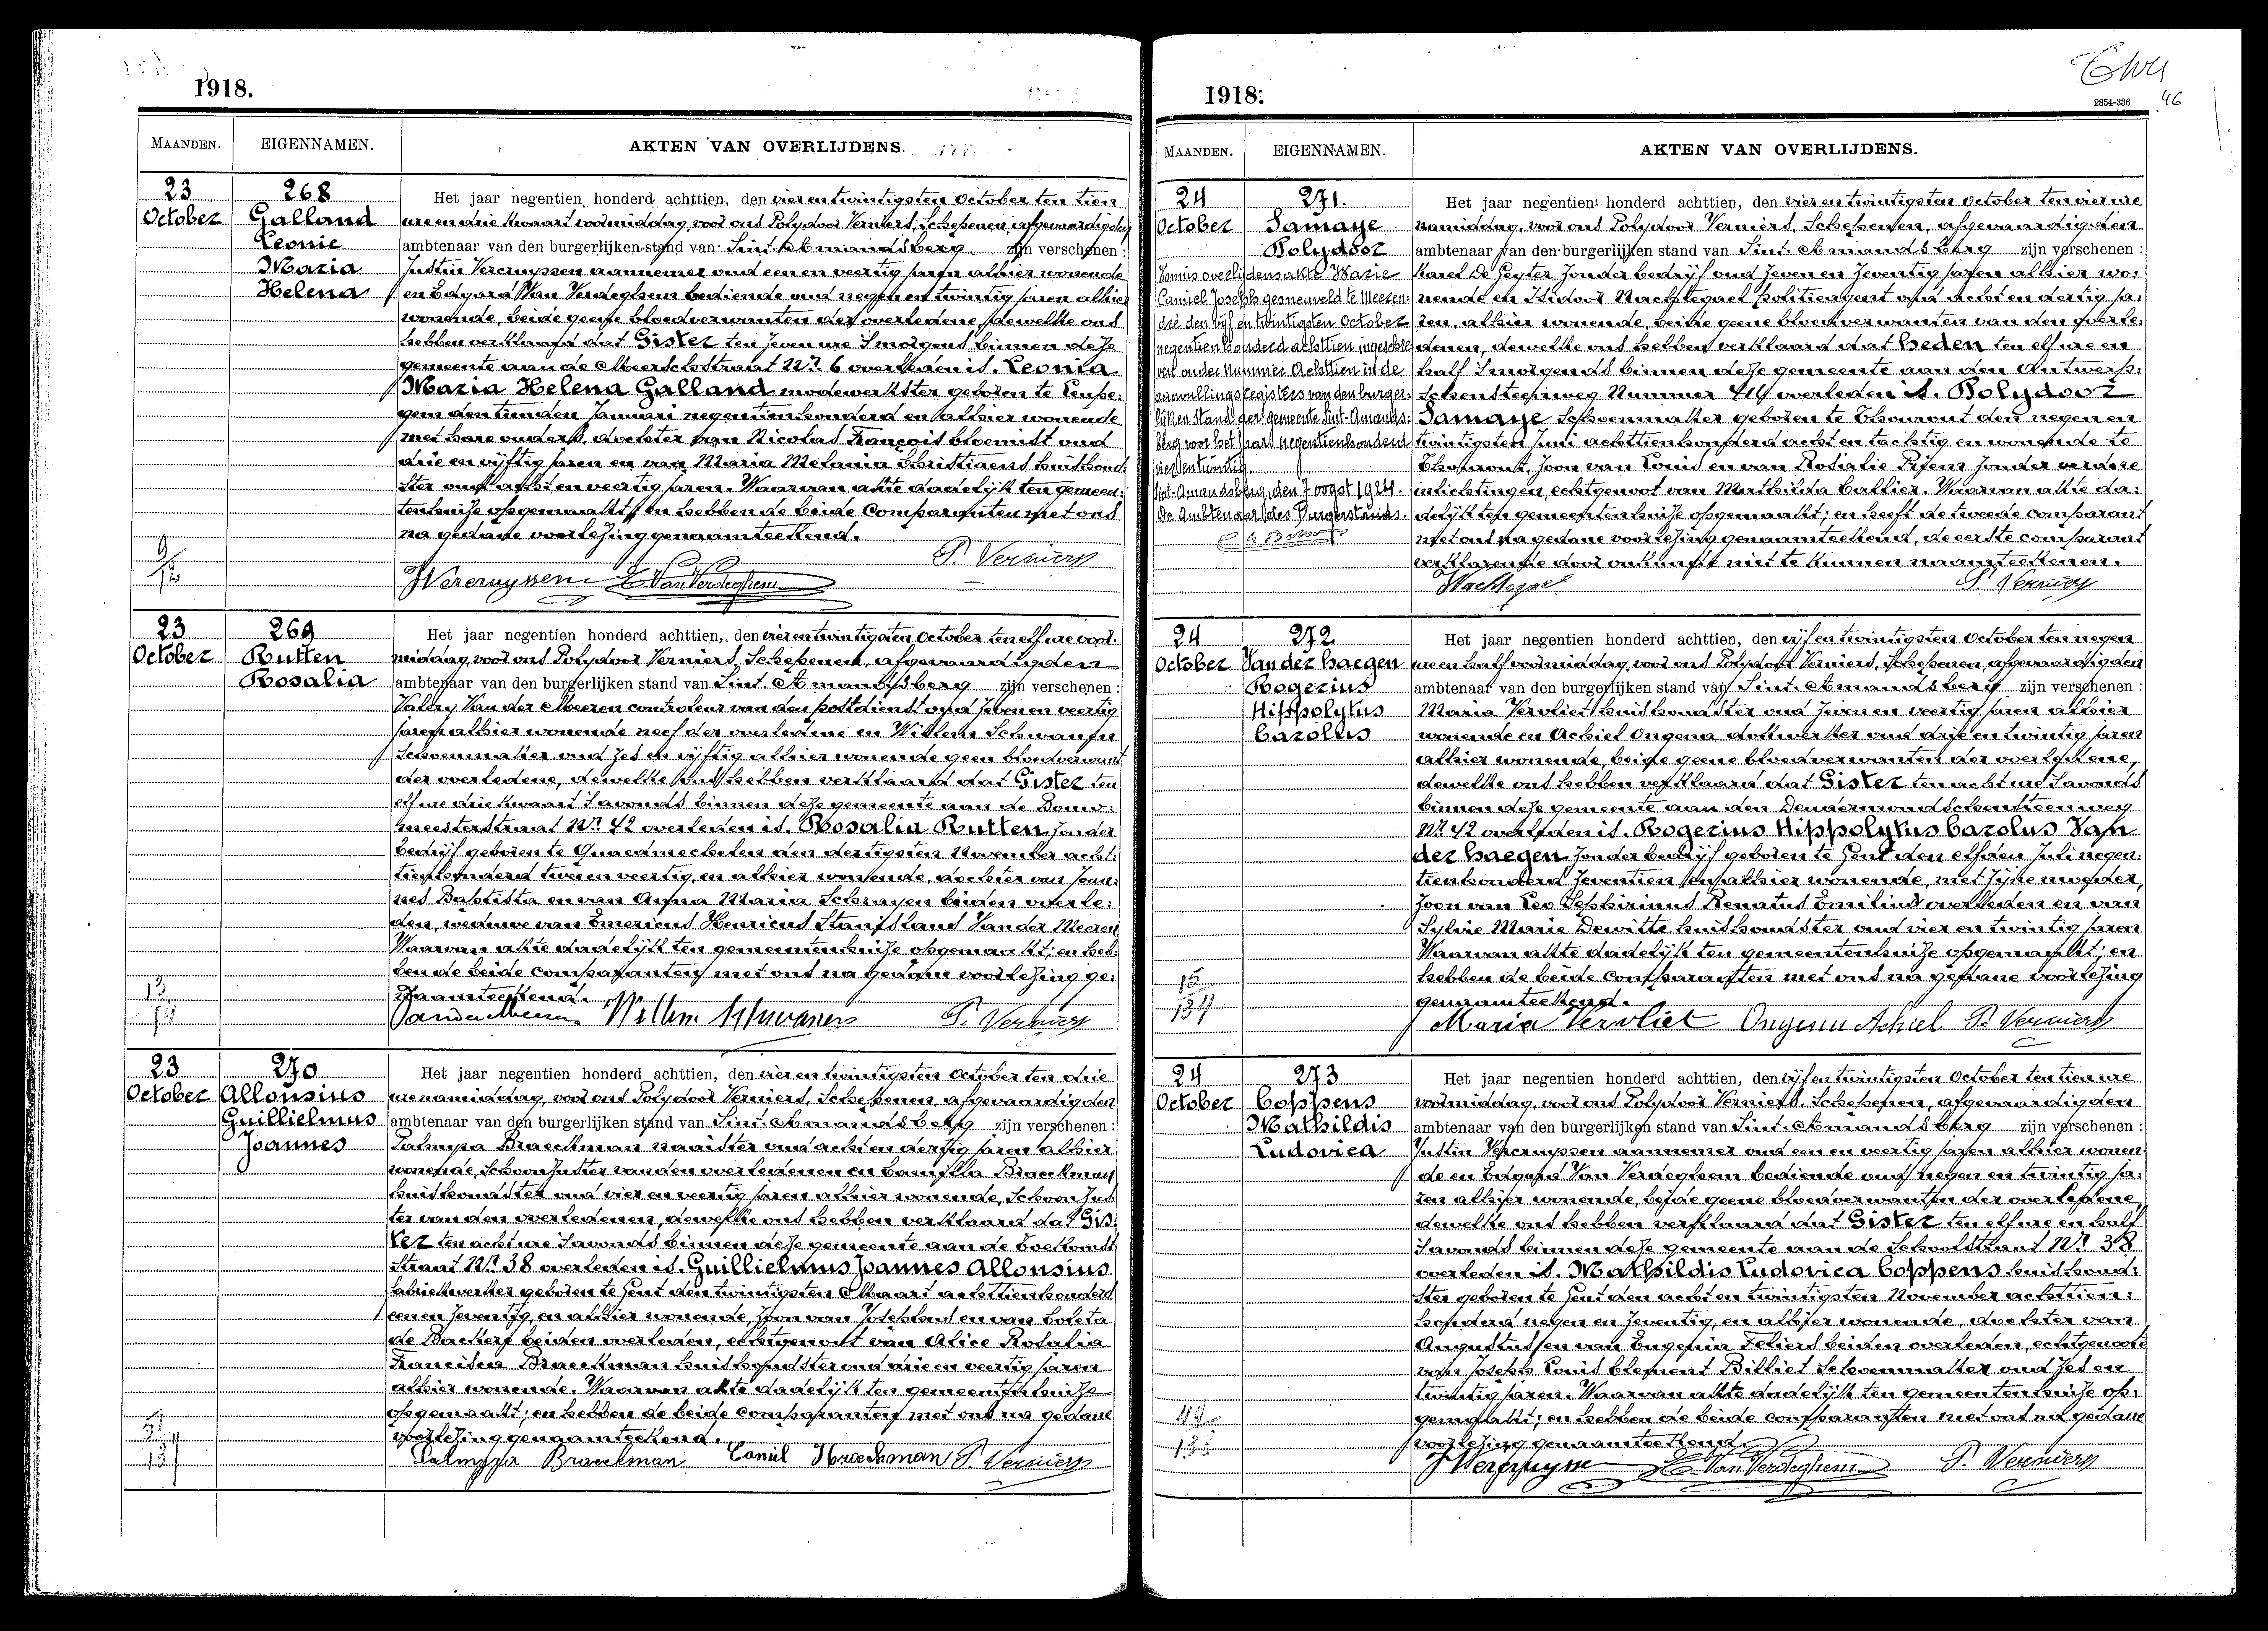 1918.
MAANDEN. EIGENNAMEN. AKTEN VAN OVERLIJDENS.
23 October
268
Galland
Leonie
Maria
Helena
Het jaar negentien honderd achttien, den vier en twintigsten October ten tien
ure en drie kwaart voormiddag, voor ons Polydoor Verniers, Schepenen, afgevaardigden
ambtenaar van den burgerlijken stand van Sint-Amandsberg zijn verschenen:
Justin Vercruyssen aannemer oud een en veertig jaren alhier wonende
en Edgard Van Verdeghem bediende oud negen en twintig jaren alhier
wonende, beide geene bloedverwanten der overledene, dewelke ons
hebben verklaard dat Gister ten zeven ure 's morgens binnen deze
gemeente aan de Meerschstraat Nr. 6 overleden is. Leonia
Maria Helena Galland modewerkster geboren te
den Januari negentienhonderd en alhier wonende
met hare ouders, dochter van Nicolas François bloemist oud
drie en vijftig jaren en van Maria Melania Christiaens huishoud-
ster oud acht en veertig jaren. Waarvan akte dadelijk ten gemeen-
tenhuize opgemaakt; en hebben de beide Comparanten met ons
na gedane voorlezing genaamteekend.
JVercruyssen E Van Verdeghem P. Verniers
23 October
269
Rutten
Rosalia
Het jaar negentien honderd achttien, den vier en twintigsten October ten elf ure voor-
middag, voor ons Polydoor Verniers, Schepenen, afgevaardigden
ambtenaar van den burgerlijken stand van Sint-Amandsberg zijn verschenen:
Van der Meeren controleur van den postdienst oud zeven en veertig
jaren alhier wonende neef der overledene en Willem Schwanen
Schoenmaker oud zes en vijftig alhier wonende geen bloedverwant
der overledene, dewelke ons hebben verklaard dat Gister ten
elf ure drie kwaart 's avonds binnen deze gemeente aan de Bouw-
meesterstraat Nr. 42 overleden is. Rosalia Rutten zonder
bedrijf geboren te Quaedmechelen den dertigsten November acht-
tienhonderd twee en veertig, en alhier wonende, dochter van Joan-
nes Baptista en van Anna Maria beiden overle-
den, weduwe van Emericus Henricus Van der Meeren
Waarvan akte dadelijk ten gemeentenhuize opgemaakt; en heb-
ben de beide comparanten met ons na gedane voorlezing ge-
naamteekend.
Vandermeeren Willem Schwanen P. Verniers
23 October
270
Allonsius
Guillielmus
Joannes
Het jaar negentien honderd achttien, den vier en twintigsten October ten drie
ure namiddag, voor ons Polydoor Verniers, Schepenen, afgevaardigden
ambtenaar van den burgerlijken stand van Sint-Amandsberg zijn verschenen:
Palmyra Braeckman naaister oud acht en dertig jaren alhier
wonende, Schoonzuster van den overledenen en Braeckman
huishoudster oud vier en veertig jaren alhier wonende, Schoonzus-
ter van den overledenen, dewelke ons hebben verklaard dat Gis-
ter ten acht ure 's avonds binnen deze gemeente aan de
straat Nr. 38 overleden is. Guillielmus Joannes Allonsius
fabriekwerker geboren te Gent den twintigsten Maart achttienhonderd
een en zeventig, en alhier wonende, zoon van Josephus en van Coleta
de Backer beiden overleden, echtgenoot van Alice Rosalia
Francisca Braeckman huishoudster oud drie en veertig jaren
alhier wonende. Waarvan akte dadelijk ten gemeentenhuize
opgemaakt; en hebben de beide comparanten met ons na gedane
voorlezing genaamteekend.
Palmyra Braeckman Braeckman P. Verniers
1918.
2854-336
46
MAANDEN. EIGENNAMEN. AKTEN VAN OVERLIJDENS.
24 October
271.
Samaye
Polydoor
overlijdensakte Marie
Camiel Joseph gesneuveld te
den vijf en twintigsten October
negentien honderd achttien ingeschre-
ven onder nummer Achttien in de
registers van den burger-
lijken stand der gemeente Sint-Amands-
berg voor het jaar negentienhonderd
Sint-Amandsberg, den 7 oogst 1924.
De Ambtenaar des Burgerstands.
Het jaar negentien honderd achttien, den vier en twintigsten October ten vier ure
namiddag, voor ons Polydoor Verniers, Schepenen, afgevaardigden
ambtenaar van den burgerlijken stand van Sint-Amandsberg zijn verschenen:
Karel De Peyter zonder bedrijf oud zeven en zeventig jaren alhier wo-
nende en Isidoor Nachtegael politieagent oud acht en dertig ja-
ren, alhier wonende, beide geene bloedverwanten van den overle-
denen, dewelke ons hebben verklaard dat heden ten elf ure en
half 's morgends binnen deze gemeente aan den Antwerp-
schensteenweg Nummer overleden is. Polydoor
Samaye Schoenmaker geboren te Thourout den negen en
twintigsten Juni achttienhonderd acht en tachtig en wonende te
Thourout, zoon van Louis en van Rosialie zonder verdere
inlichtingen, echtgenoot van Mathilda Callier. Waarvan akte da-
delijk ten gemeentenhuize opgemaakt; en heeft de tweede comparant
met ons na gedane voorlezing genaamteekend, de eerste comparant
verklarende door onkunde niet te kunnen naamteekenen.
Nachtegael P. Verniers
24 October
272
Van der Haegen
Rogerius
Hippolytus
Carolus
Het jaar negentien honderd achttien, den vijf en twintigsten October ten negen
ure en half voormiddag, voor ons Polydoor Verniers, Schepenen, afgevaardigden
ambtenaar van den burgerlijken stand van Sint-Amandsberg zijn verschenen:
Maria Vervliet huishoudster oud zeven en veertig jaren alhier
wonende en Achiel Ongena dokwerker oud drie en twintig jaren
alhier wonende, beide geene bloedverwanten der overledene,
dewelke ons hebben verklaard dat Gister ten acht ure 's avonds
binnen deze gemeente aan den Dendermondschensteenweg
Nr. 42 overleden is. Rogerius Hippolytus Carolus Van
der Haegen zonder bedrijf geboren te Gent den elfden Juli negen-
tienhonderd zeventien en alhier wonende, met zijne moeder,
zoon van Leo Zephirinus Renatus overleden en van
Sylvie Marie Dewitte huishoudster oud vier en twintig jaren
Waarvan akte dadelijk ten gemeentenhuize opgemaakt; en
hebben de beide comparanten met ons na gedane voorlezing
genaamteekend.
Maria Vervliet Ongena Achiel P. Verniers
24 October
273
Coppens
Mathildis
Ludovica
Het jaar negentien honderd achttien, den vijf en twintigsten October ten tien ure
voormiddag, voor ons Polydoor Verniers, Schepenen, afgevaardigden
ambtenaar van den burgerlijken stand van Sint-Amandsberg zijn verschenen:
Justin Vercruyssen aannemer oud een en veertig jaren alhier wonen-
de en Edgard Van Verdeghem bediende oud negen en twintig ja-
ren alhier wonende, beide geene bloedverwanten der overledene,
dewelke ons hebben verklaard dat Gister ten elf ure en half
's avonds binnen deze gemeente aan de Schoolstraat Nr. 38
overleden is. Mathildis Ludovica Coppens huishoud-
ster geboren te Gent den acht en twintigsten November achttien-
honderd negen en zeventig, en alhier wonende, dochter van
Augustus en van Eugenia beiden overleden, echtgenoote
van Joseph Louis Clement Billiet Schoenmaker oud zes en
twintig jaren. Waarvan akte dadelijk ten gemeentenhuize op-
gemaakt; en hebben de beide comparanten met ons na gedane
voorlezing genaamteekend.
E Van Verdeghem P. Verniers